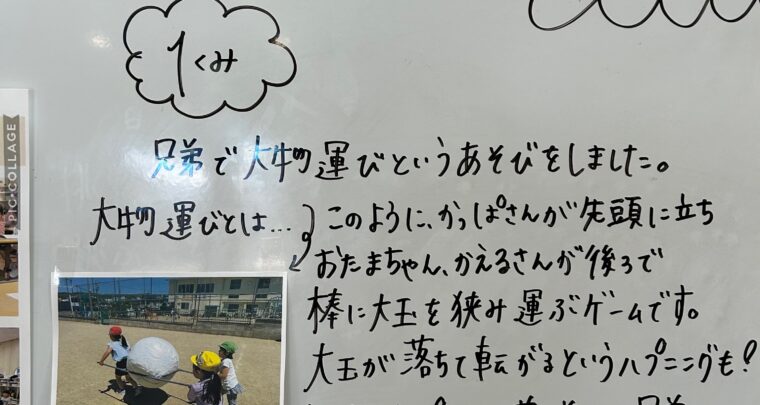 1くみ
兄弟で大物運びというあそびをしました。
大物運びとは… このように、かっぱさんが先頭に立ち
おたまちゃん、かえるさんが後ろで
棒に大玉を挟み運ぶゲームです。
大玉が落ちて転がるというハプニングも!
PIC•COLLAGE